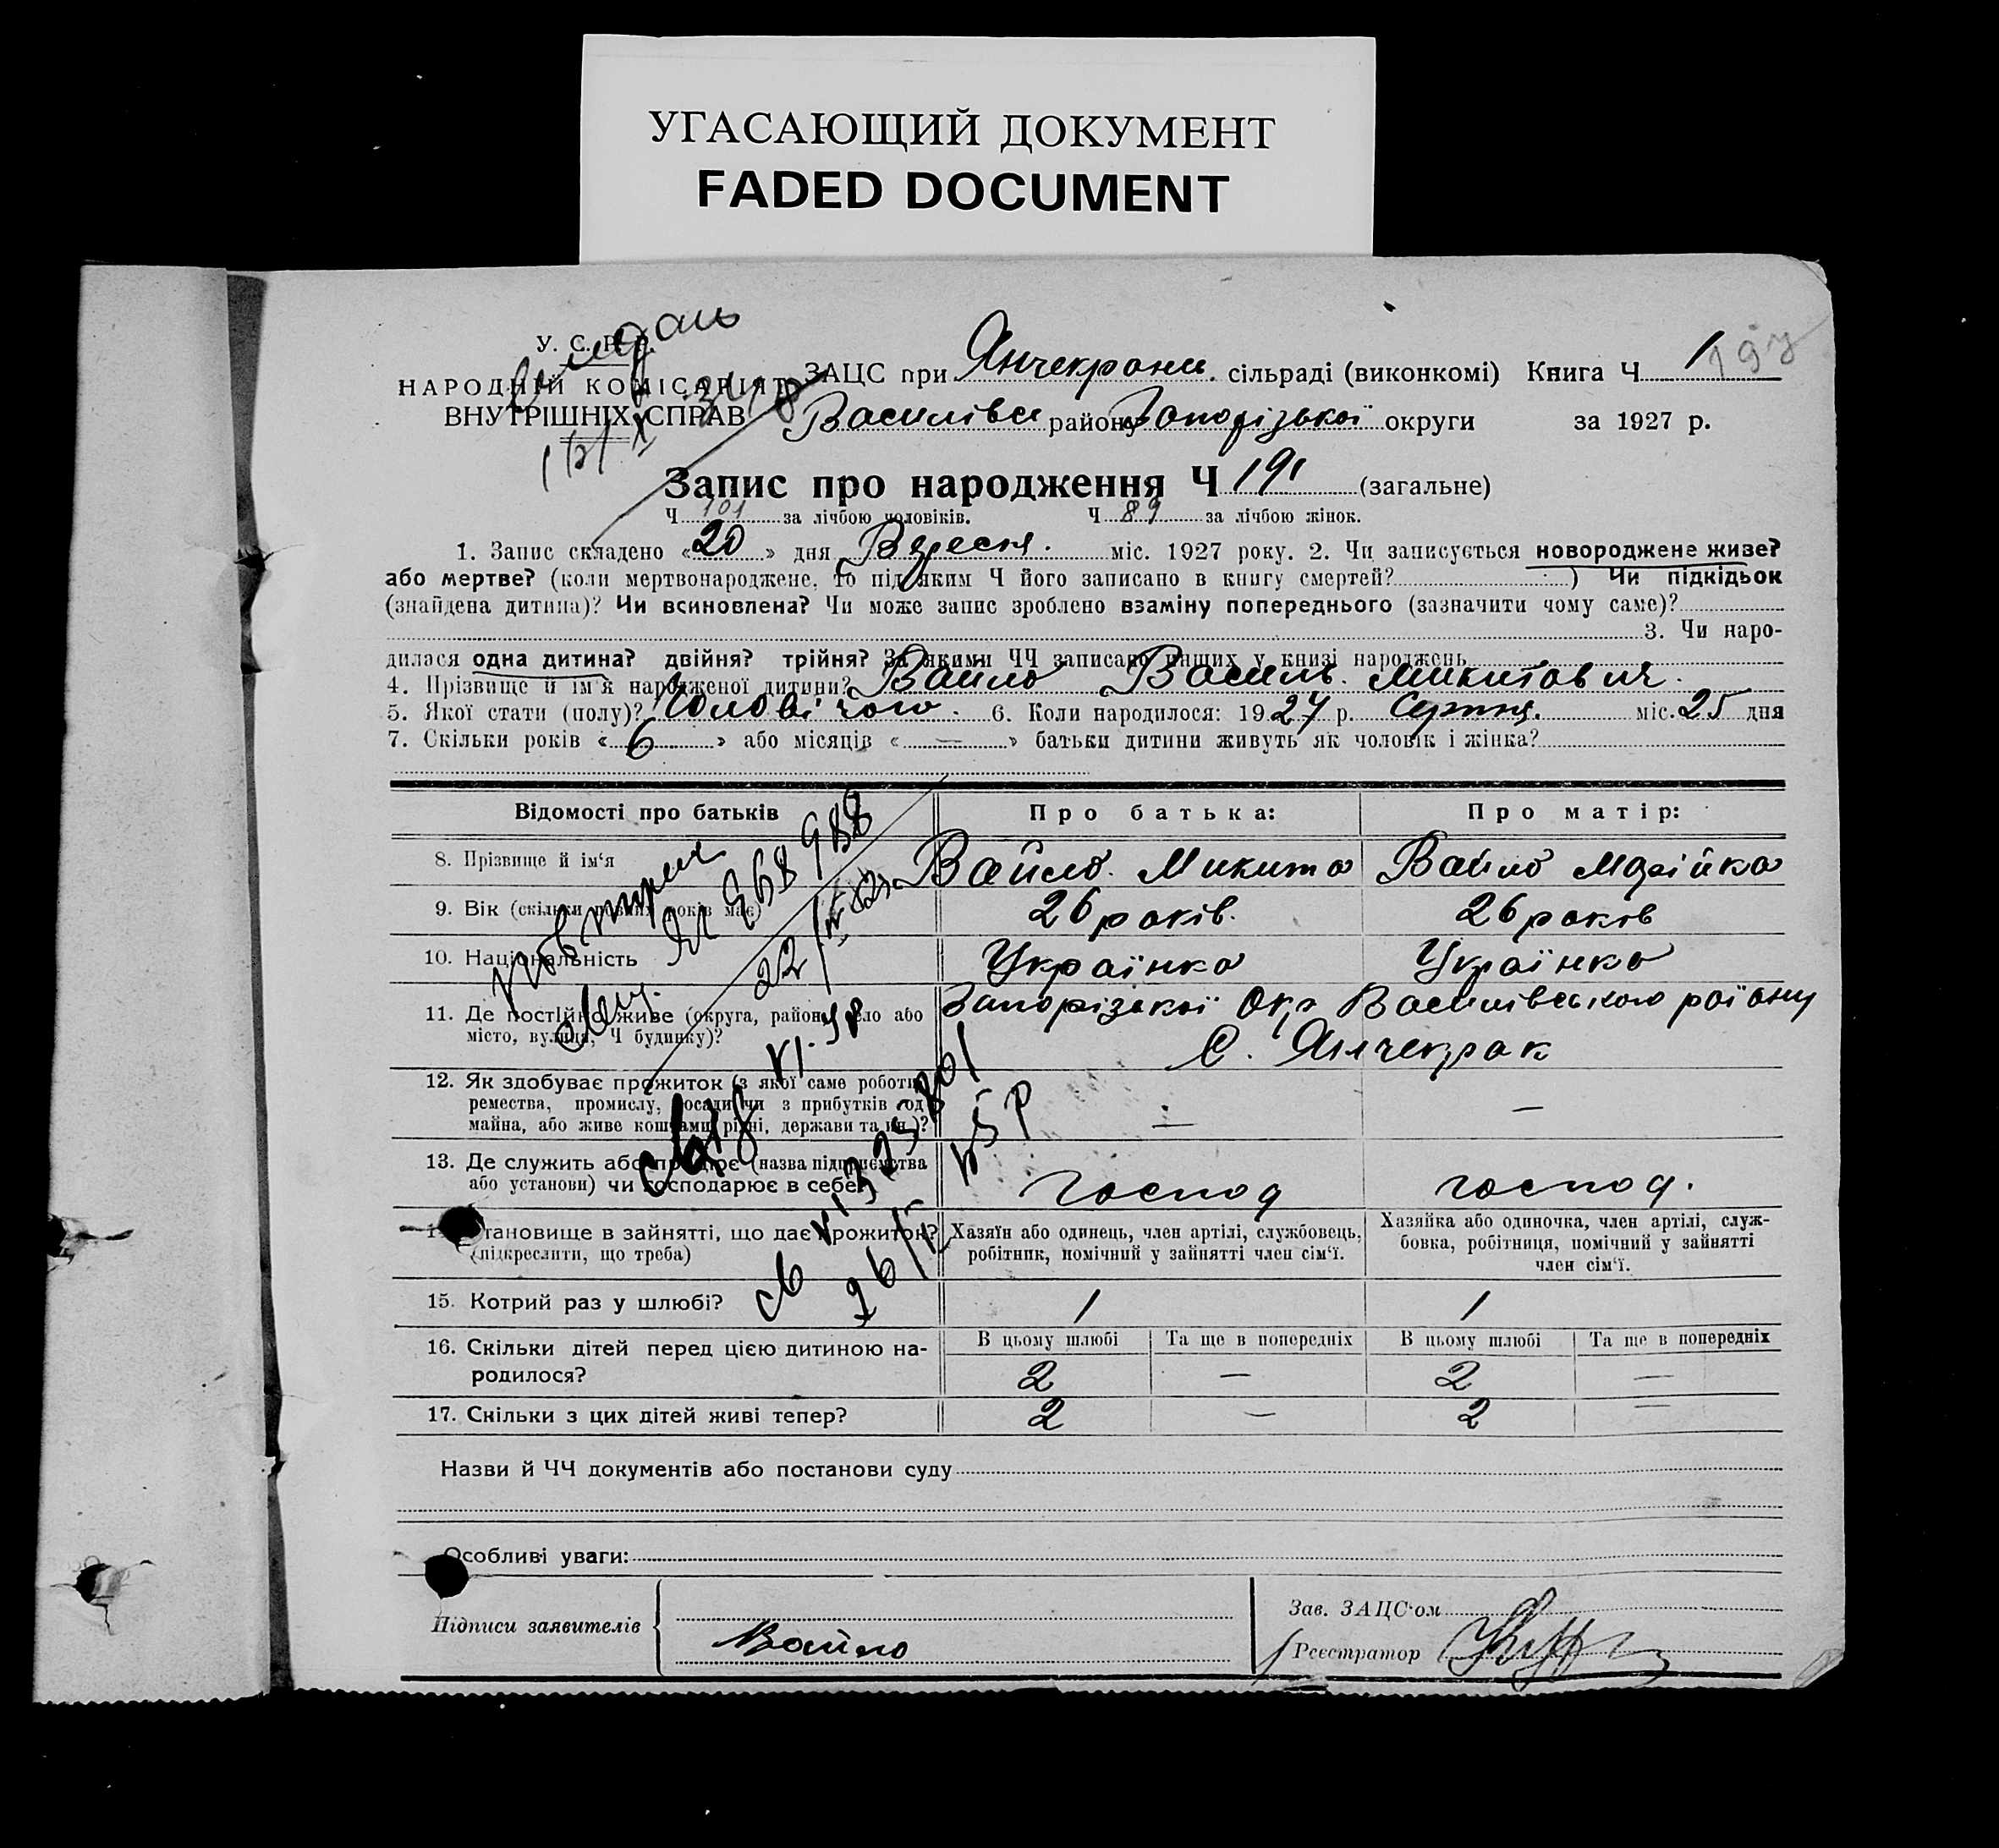 УГАСАЮЩИЙ ДОКУМЕНТ
FADED DOCUMENT
У. С. Р. Р.
НАРОДНІЙ КОМІСАРІЯТ
ВНУТРІШНІХ СПРАВ
видано
ЗАЦС при Янчекрани. сільраді (виконкомі) Книга Ч 1
197
Василівси району Запорізької округи за 1927 р.
Запис про народження Ч 191 (загальне)
Ч 101 за лічбою чоловіків. Ч 89 за лічбою жінок.
1. Запис складено «20» дня Вересня. міс. 1927 року. 2. Чи записується новороджене живе?
або мертве? (коли мертвонароджене, то під яким Ч його записано в книгу смертей? ) Чи підкідьок
(знайдена дитина)? Чи всиновлена? Чи може запис зроблено взаміну попереднього (зазначити чому саме)?
3. Чи наро-
дилася одна дитина? двійня? трійня? За якими ЧЧ записано инших у книзі народжень
4. Прізвище й ім'я народженої дитини? Вайло Василь. Микитович.
5. Якої стати (полу)? Чоловічого. 6. Коли народилося: 1927 р. Серпня. міс. 25 дня
7. Скільки років «6» або місяців «—» батьки дитини живуть як чоловік і жінка?
Відомості про батьків Про батька: Про матір:
8. Прізвище й ім'я Вайло. Микита Вайло Марійка
9. Вік (скільки повних років має) 26 років. 26 років
10. Національність Українка Українка
11. Де постійно живе (округа, район, село або Запорізької Окр Василівського раїону
місто, вулиця, Ч будинку)? С. Янчекрак
12. Як здобуває прожиток (з якої саме роботи,
ремества, промислу, посади чи з прибутків од — —
майна, або живе коштами рідні, держави та ин.)?
13. Де служить або працює (назва підприємства
або установи) чи господарює в себе? господ господ.
14. Становище в зайнятті, що дає прожиток? Хазяїн або одинець, член артілі, службовець, Хазяйка або одиночка, член артілі, служ-
(підкреслити, що треба) робітник, помічний у зайнятті член сім'ї. бовка, робітниця, помічний у зайнятті
член сім'ї.
15. Котрий раз у шлюбі? 1 1
16. Скільки дітей перед цією дитиною на- В цьому шлюбі Та ще в попередніх В цьому шлюбі Та ще в попередніх
родилося? 2 — 2 —
17. Скільки з цих дітей живі тепер? 2 — 2 —
Назви й ЧЧ документів або постанови суду
Особливі уваги:
Підписи заявителів Вайло
Зав. ЗАЦС'ом
Реєстратор